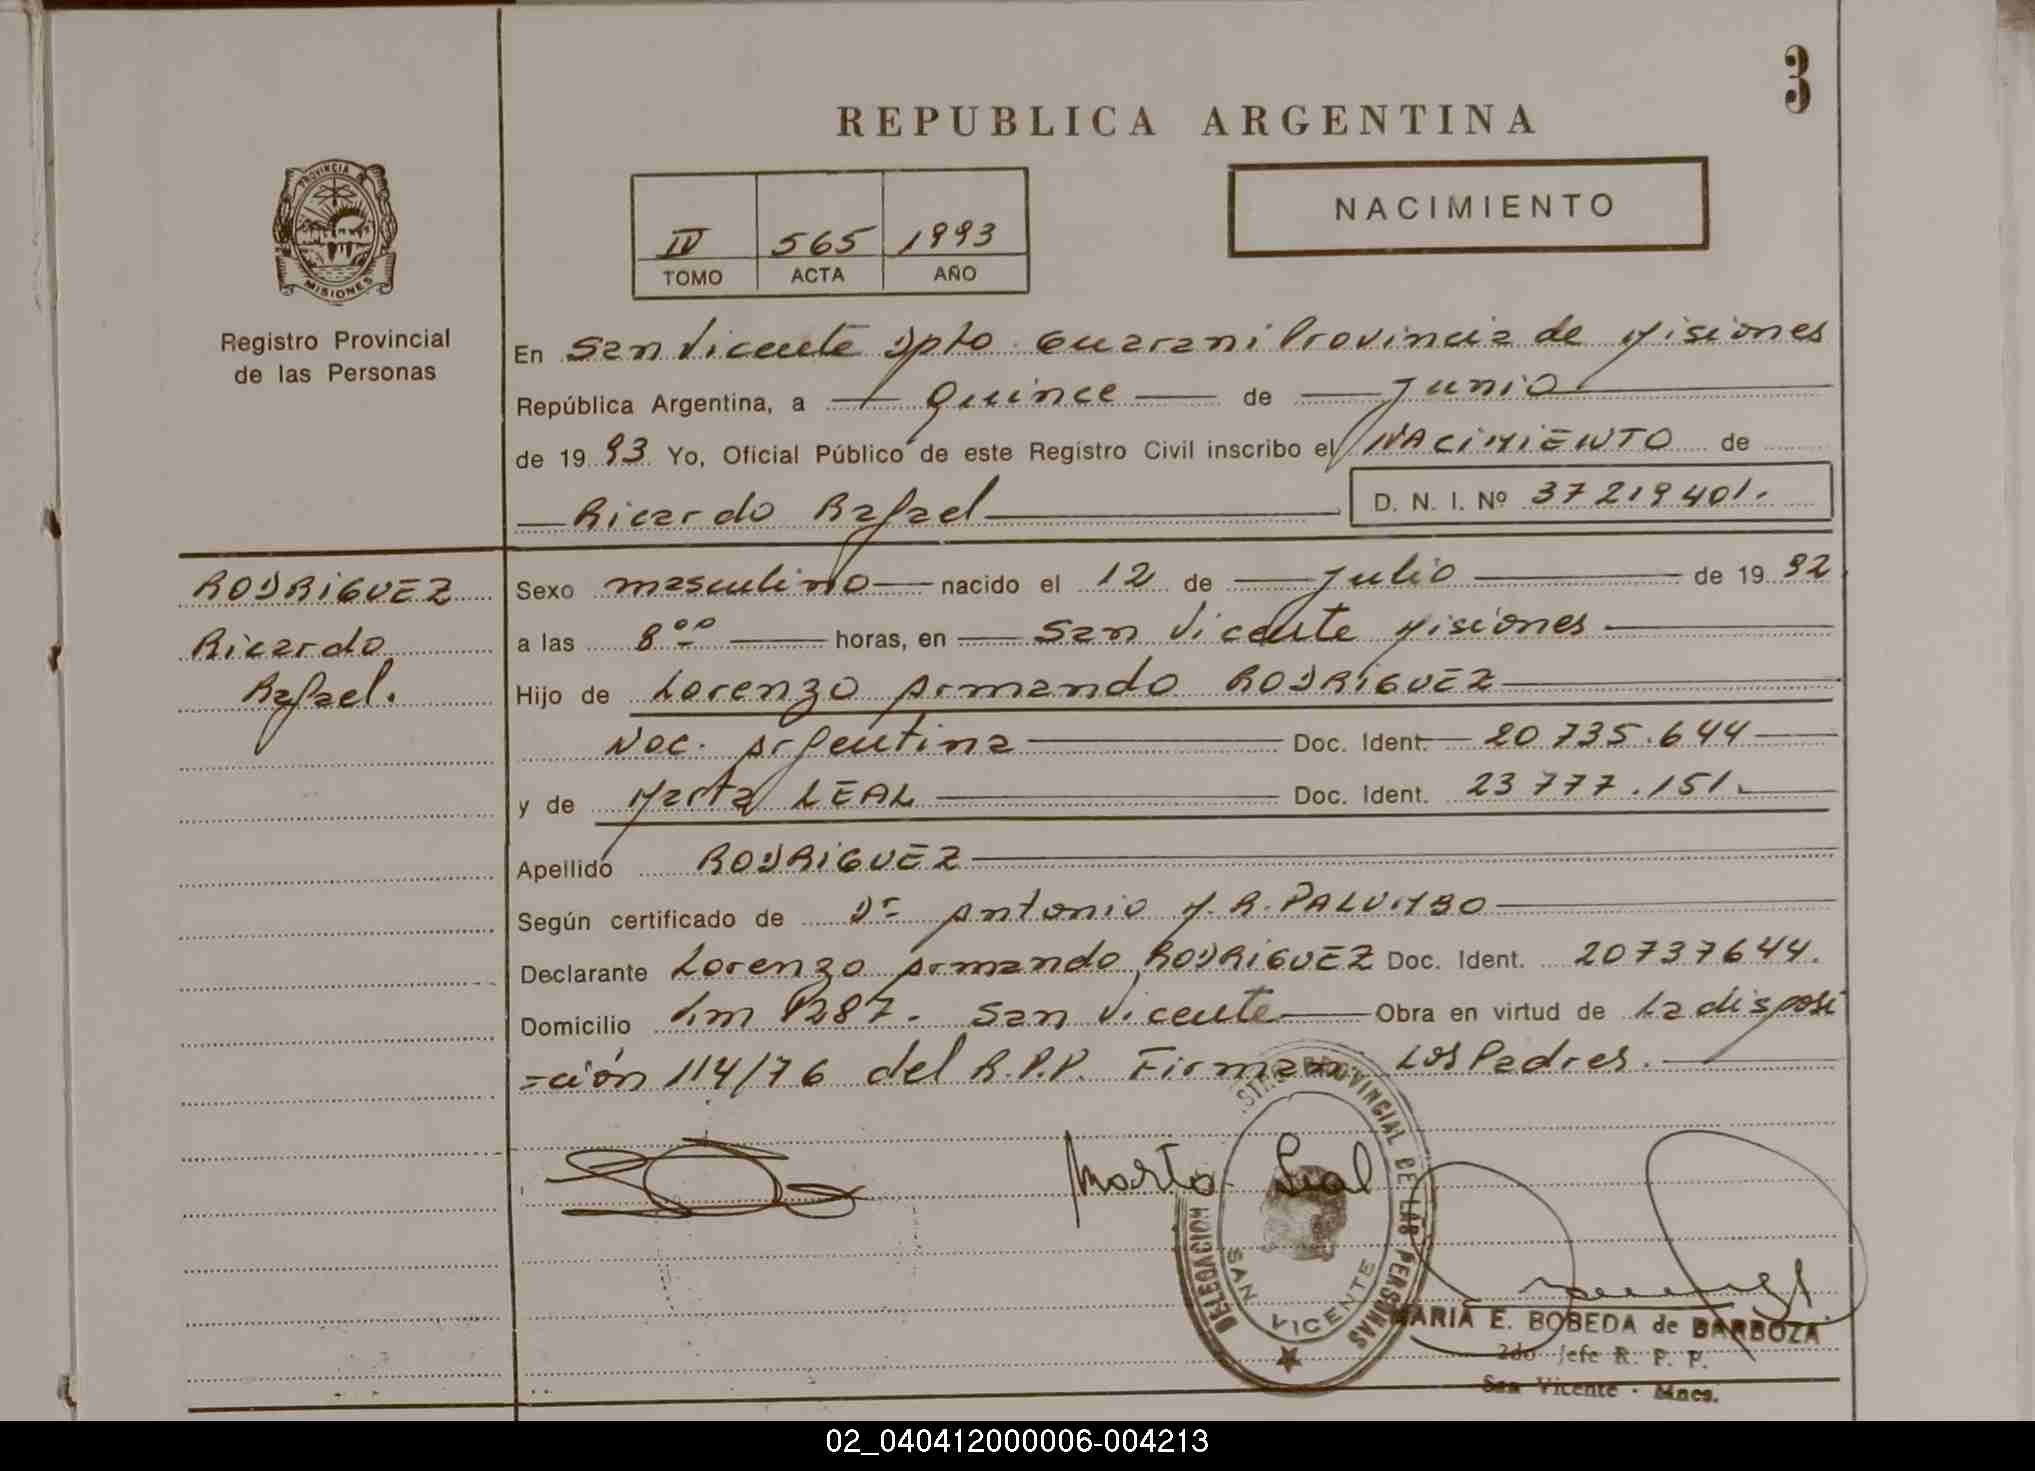 3
REPUBLICA ARGENTINA
PROVINCIA DE
MISIONES
Registro Provincial
de las Personas
IV 565 1993
TOMO ACTA AÑO
NACIMIENTO
En San Vicente Dpto Guarani Provincia de Misiones
República Argentina, a Quince de Junio
de 1993 Yo, Oficial Público de este Registro Civil inscribo el NACIMIENTO de
Ricardo Rafael D. N. I. Nº 37219401.
RODRIGUEZ
Ricardo
Rafael.
Sexo masculino nacido el 12 de Julio de 1992
a las 8 00 horas, en San Vicente Misiones
Hijo de Lorenzo Armando RODRIGUEZ
Nac. Argentina Doc. Ident. 20 735.644
y de Marta LEAL Doc. Ident. 23 777.151.
Apellido RODRIGUEZ
Según certificado de Dr Antonio M.R. PALUMBO
Declarante Lorenzo Armando RODRIGUEZ Doc. Ident. 20737644.
Domicilio Km 1287. San Vicente Obra en virtud de la disposi
=ción 114/76 del R.P.P. Firman Los Padres.
Marta Leal
DELEGACION PROVINCIAL DE LAS PERSONAS
SAN VICENTE
MARIA E. BOBEDA de BARBOZA
2do Jefe R. P. P.
San Vicente - Mnes.
02_040412000006-004213